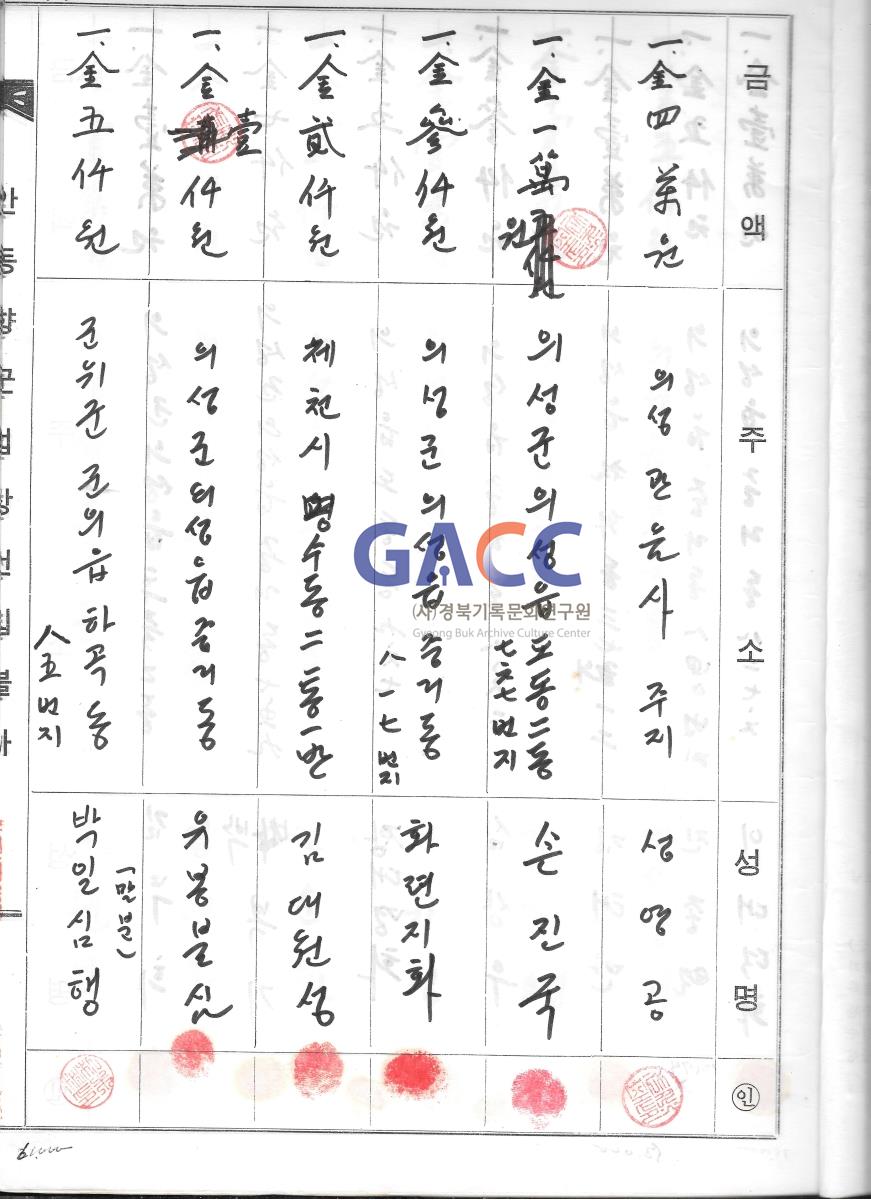 금액
주소
성명
인
一. 金 四 萬 원
의성 관운사 주지
성영공
一. 金 一 萬
원
의성군 의성읍 도동二동
七六七 번지
손진국
一. 金 參 仟 원
의성군 의성읍 중리동
八一七 번지
화련지화
一. 金 貳 仟 원
제천시 명수동 二통 一반
김대원성
一. 金 壹 仟 원
의성군 의성읍 중리동
유봉불심
一. 金 五 仟 원
군위군 군위읍 하곡동
八五 번지
박일심행
(말분)
GACC
(사)경북기록문화연구원
Gyeong Buk Archive Culture Center